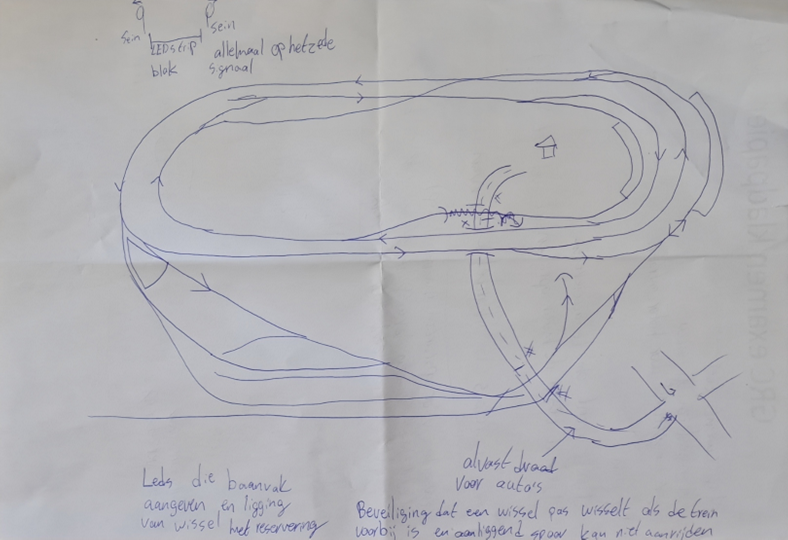 sein
sein
LEDstrip
blok
allemaal op hetzede
signaal
alvast draad
voor auto's
Leds die baanvak
aangeven en ligging
van wissel met reservering
Beveiliging dat een wissel pas wisselt als de trein
voorbij is en aanliggend spoor kan niet aanrijden